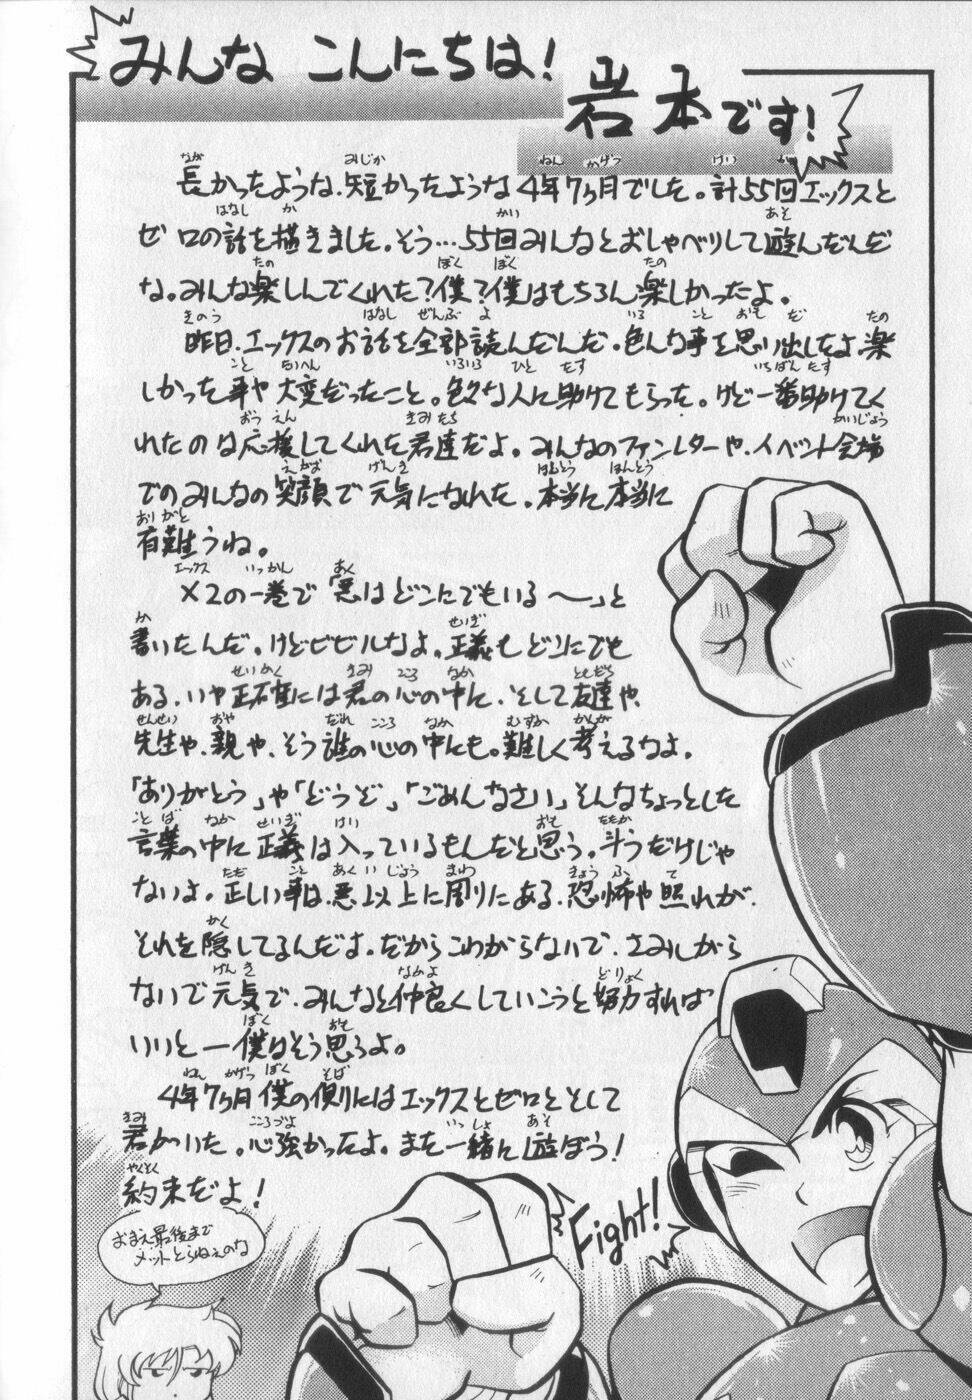 みんな こんにちは!
岩本です!
長かったような、短かったような4年7ヶ月でした。計55回エックスと
ゼロの話を描きました。そう…55回みんなとおしゃべりして遊んだんだ
な。みんな楽しんでくれた?僕?僕はもちろん楽しかったよ。
昨日、エックスのお話を全部読んだんだ。色んな事を思い出したよ楽
しかった事や大変だったこと。色々な人に助けてもらった。けど一番助けてく
れたのは応援してくれた君達だよ。みんなのファンレターや、イベント会場
でのみんなの笑顔で元気になれた。本当に本当に
有難うね。
X2の一巻で「悪はどこにでもいる〜」と
書いたんだ。けどビビルなよ。正義もどこにでも
ある、いや正確には君の心の中に、そして友達や、
先生や、親や、そう誰の心の中にも。難しく考えるなよ。
「ありがとう」や「どうぞ」「ごめんなさい」そんなちょっとした
言葉の中に正義は入っているもんだと思う。斗うだけじゃ
ないよ。正しい事は、悪以上に周りにある、恐怖や照れが、
それを隠してるんだよ。だからこわがらないで、さみしがら
ないで元気で、みんなと仲良くしていこうと努力すれば
いいと―僕はそう思うよ。
4年7ヶ月僕の側にはエックスとゼロとそして
君がいた。心強かったよ。また一緒に遊ぼう!
約束だよ!
おまえ最後まで
メットとらねぇのな
Fight!